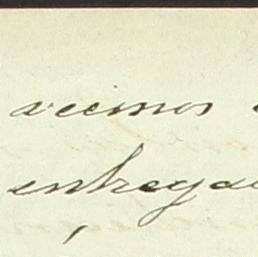 vecinos
entrega